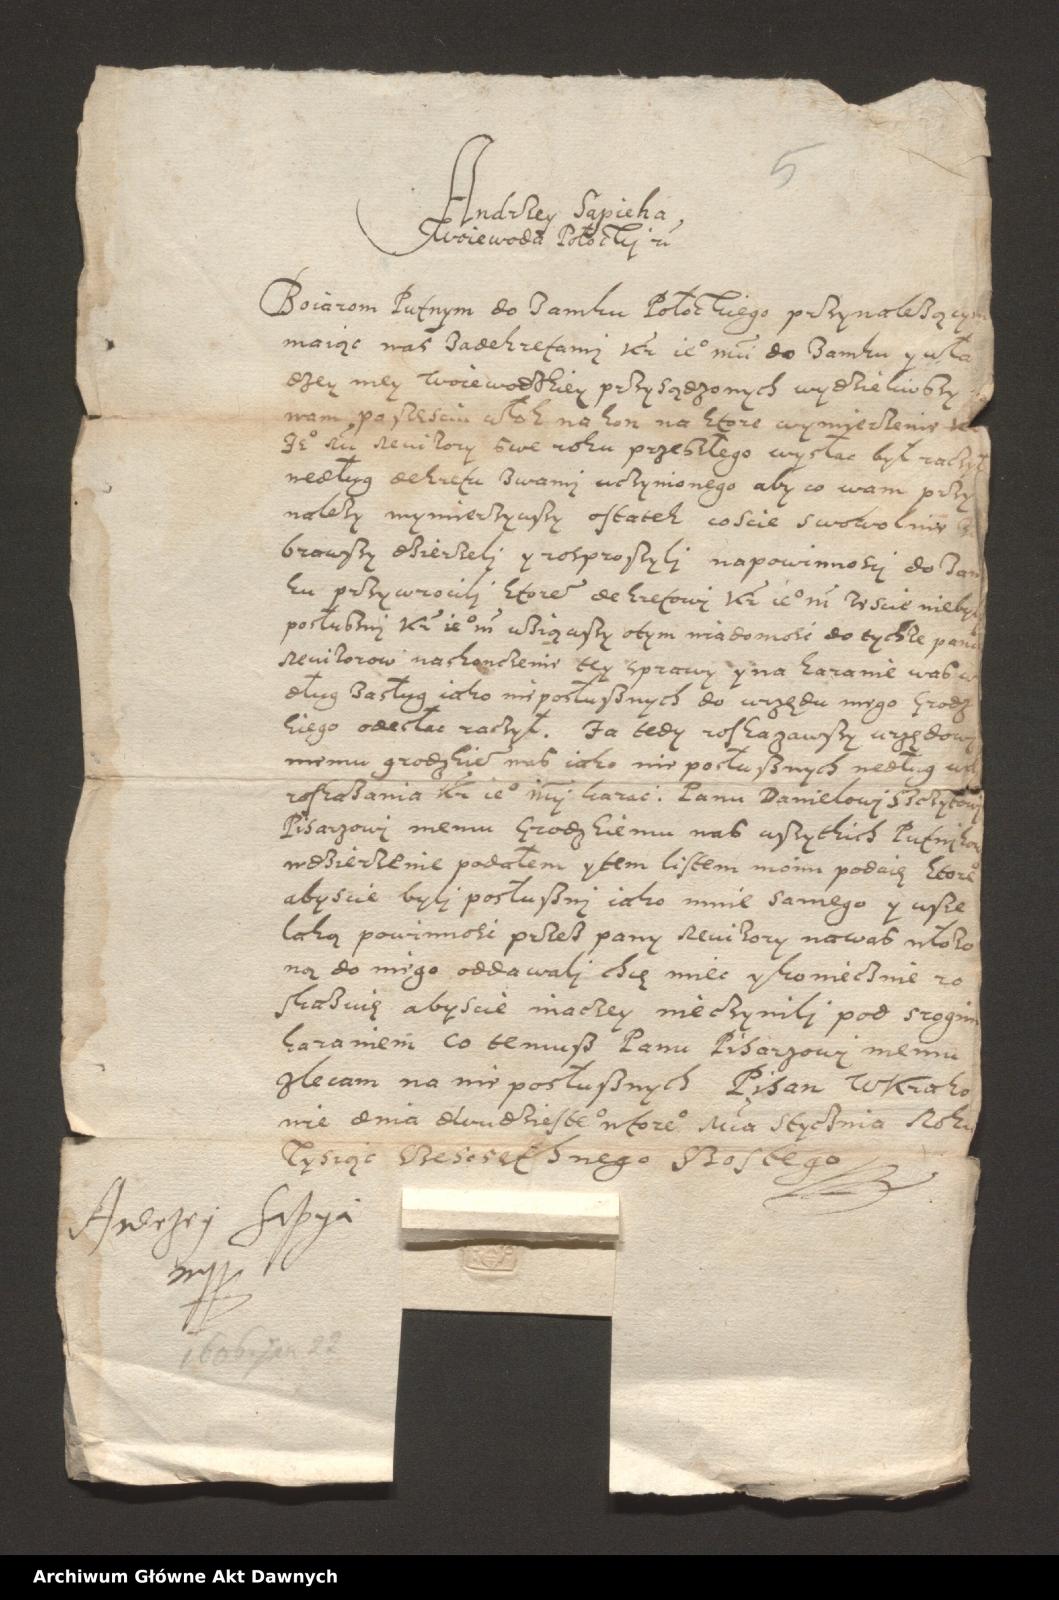 5
Andrzey Sapieha,
Woiewoda Połoczkj
Boiarom Putnym do Zamku Połoczkiego przynależącym
maiąc was Zadekretamj Kr ie° mci do Zamku y wła
dzey mey Woiewodzkiey przysądzonych wydzieliwszy
wam po sześciu włok na kon na ktore wymierzenie
Je° m rewizory swe roku przeszłego wysłac był raczył
według dekretu Zwamj uczynionego aby co wam przy
należy wymierzywszy ostatek coscie swowolnie
brawszy dzierzelj y rosproszylj napowinnosci do Zam
ku przywrocilj ktore° dekretowj Kr ie° m zescie niebylj
posłusznj Kr ie° m wziąwszy otym wiadomosc do tychże panow
rewizorow naskonczenie tey sprawy y na karanie was w
dług Zasług iako nieposłusznych do urzędu mego Grodz
kiego odesłac raczył. Ja tedy roskazawszy urzędowj
memu grodzkie° was iako nieposłusznych według
roskazania Kr ie° mcj karac. Panu Danielowj Szczytowj
Pisarzowj memu Grodzkiemu was wszytkich Putnikow
wdzierżenie podałem y tem listem moim podaię ktore°
abyscie bylj posłusznj iako mnie samego y wsze
laką powinnosc przez pany rewizory nawas włożo
ną do niego oddawalj chcę miec y koniecznie ro
skazuię abyscie inaczey nieczynilj pod srogim
karaniem co temusz Panu Pisarzowj memu
zlecam na nieposłusznych Pisan WKrako
wie dnia dwudzieste° wtore° Mca stycznia Roku
Tysiąc Szescsetnego Szostego
Andrzej Sapyia
mpp
1606 Jan 22
Archiwum Główne Akt Dawnych